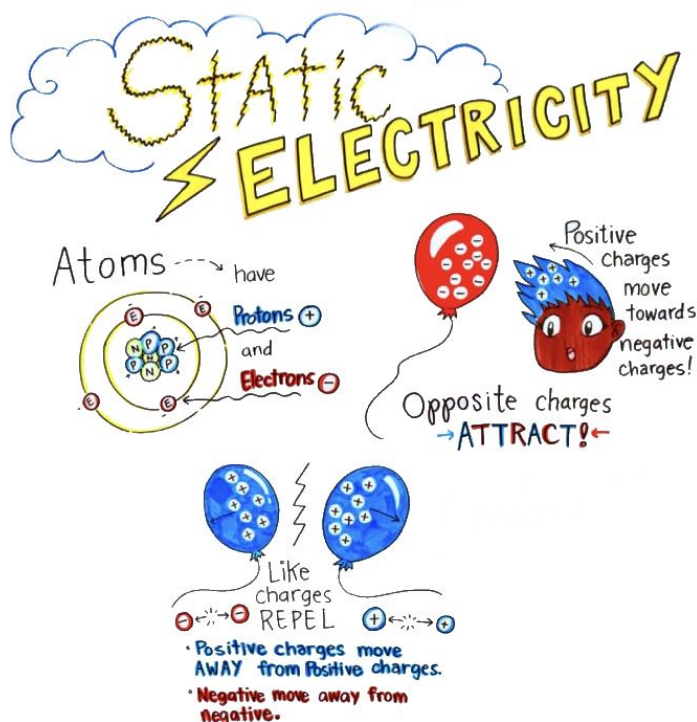 STATIC
ELECTRICITY
Atoms
have
Protons +
and
Electrons -
E
E
N P P
P N P
N
E
E
Positive
charges
move
towards
negative
charges!
Opposite charges
ATTRACT!
Like
charges
REPEL
Positive charges move
AWAY from Positive charges.
Negative move away from
negative.